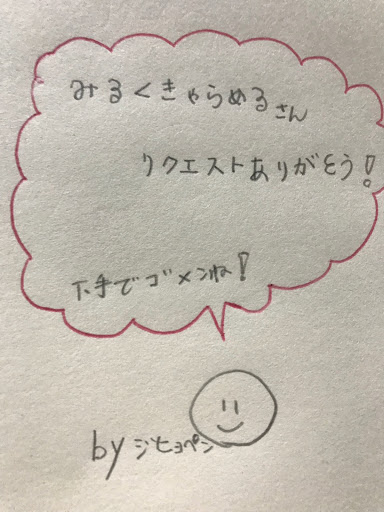 みるくきゃらめるさん
リクエストありがとう!
下手でゴメンね!
by ジヒョペン